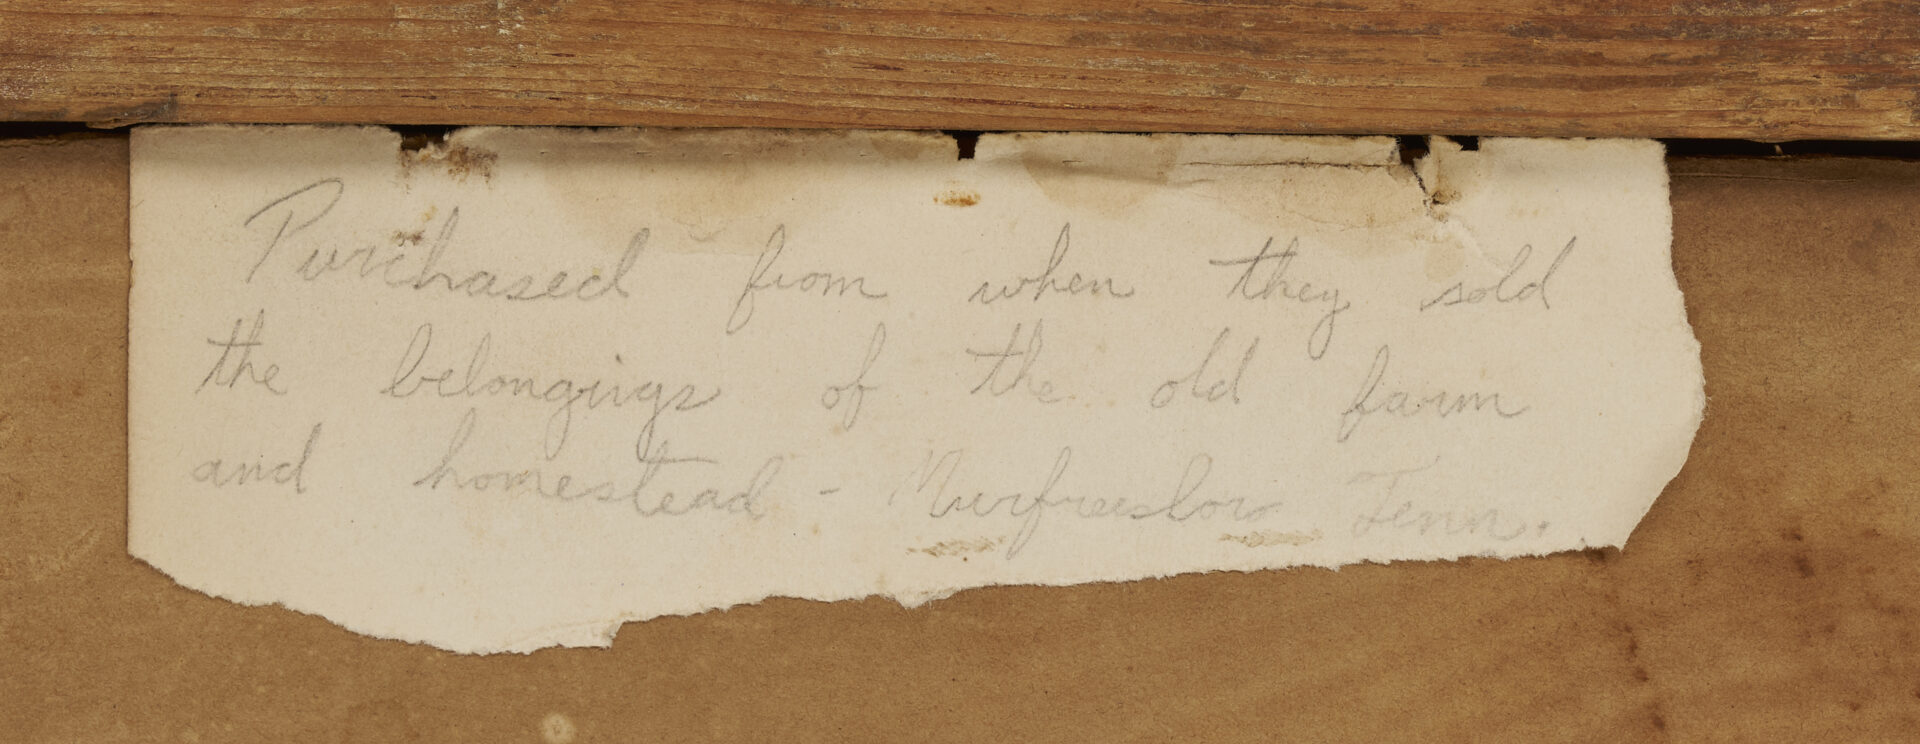 Purchased from when they sold
the belongings of the old farm
and homestead - Murfreesboro Tenn.